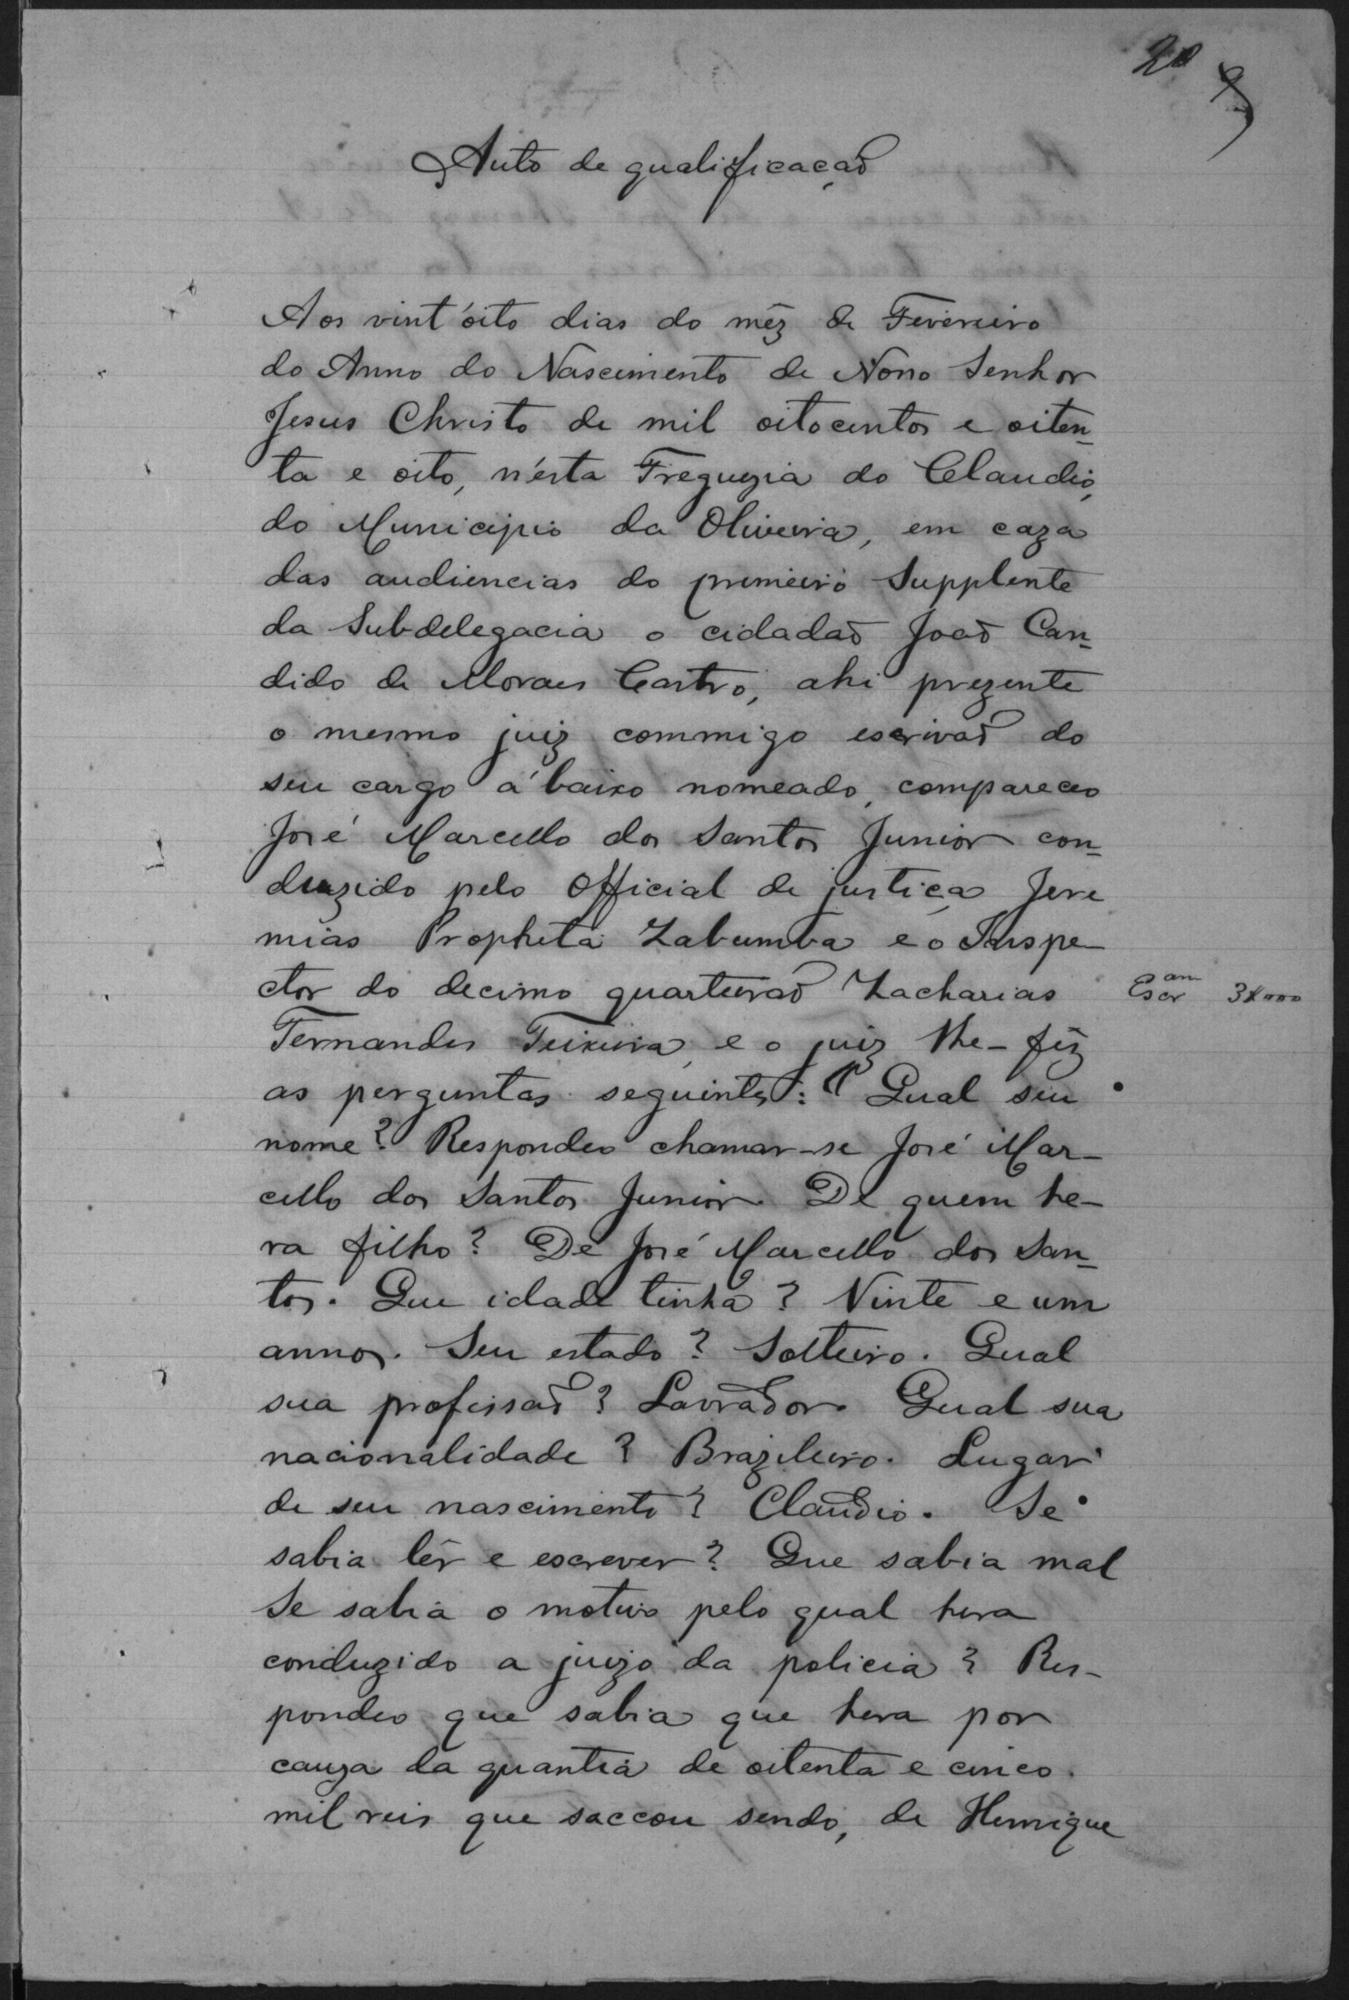 20
Auto de qualificação
Aos vint'óito dias do mêz de Fevereiro
do Anno do Nascimento de Nosso Senhor
Jesus Christo de mil oitocentos e oiten=
ta e oito, n'ésta Freguezia do Claudio,
do Municipio da Oliveira, em caza
das audiencias do primeiro Supplente
da Subdelegacia o cidadaõ Joaõ Can=
dido de Moraes Castro, ahi prezente
o mesmo juiz commigo escrivaõ do
seu cargo á baixo nomeado, compareceo
José Marcello dos Santos Junior con=
duzido pelo Official de justiça Jere
mias Propheta Zabumba e o Inspe-
ctor do decimo quarteiraõ Zacharias
Esc^am 3$000
Fernandes Teixeira, e o juiz lhe-fêz
as perguntas seguintes: Qual seu
nome? Respondeo chamar-se José Mar-
cello dos Santos Junior. De quem he-
ra filho? De José Marcello dos San=
tos. Que idade tinha? Vinte e um
annos. Seu estado? Solteiro. Qual
sua profissaõ? Lavrador. Qual sua
nacionalidade? Brazileiro. Lugar
de seu nascimento? Claudio. Se
sabia lêr e escrever? Que sabia mal
Se sabia o motivo pelo qual hera
conduzido a juizo da policia? Res-
pondeo que sabia que hera por
cauza da quantia de oitenta e cinco
mil reis que saccou sendo, de Henrique